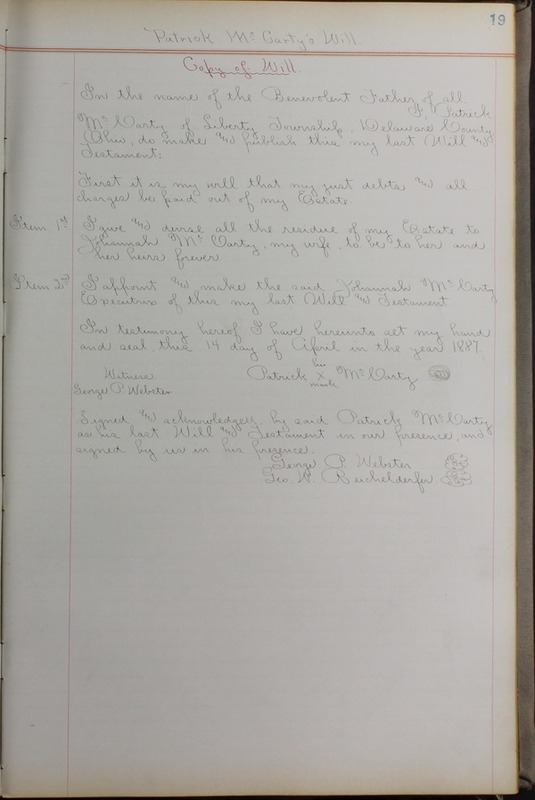 19
Patrick Mc Carty's Will.
Copy of Will.
In the name of the Benevolent Father of all.
I, Patrick
Mc Carty of Liberty Township, Delaware County
Ohio, do make and publish this my last Will and
Testament:
First it is my will that my just debts and all
charges be paid out of my Estate.
Item 1st I give and devise all the residue of my Estate to
Johannah Mc Carty, my wife, to be to her and
her heirs forever
Item 2nd I appoint and make the said Johannah Mc Carty
Executrix of this my last Will and Testament
In testimony hereof I have hereunto set my hand
and seal this 14 day of April in the year 1887.
his
Witness Patrick X Mc Carty
mark
George P. Webster
Signed and acknowledged by said Patrick Mc Carty
as his last Will and Testament in our presence, and
signed by us in his presence.
George P. Webster
Geo. W. Reichelderfer